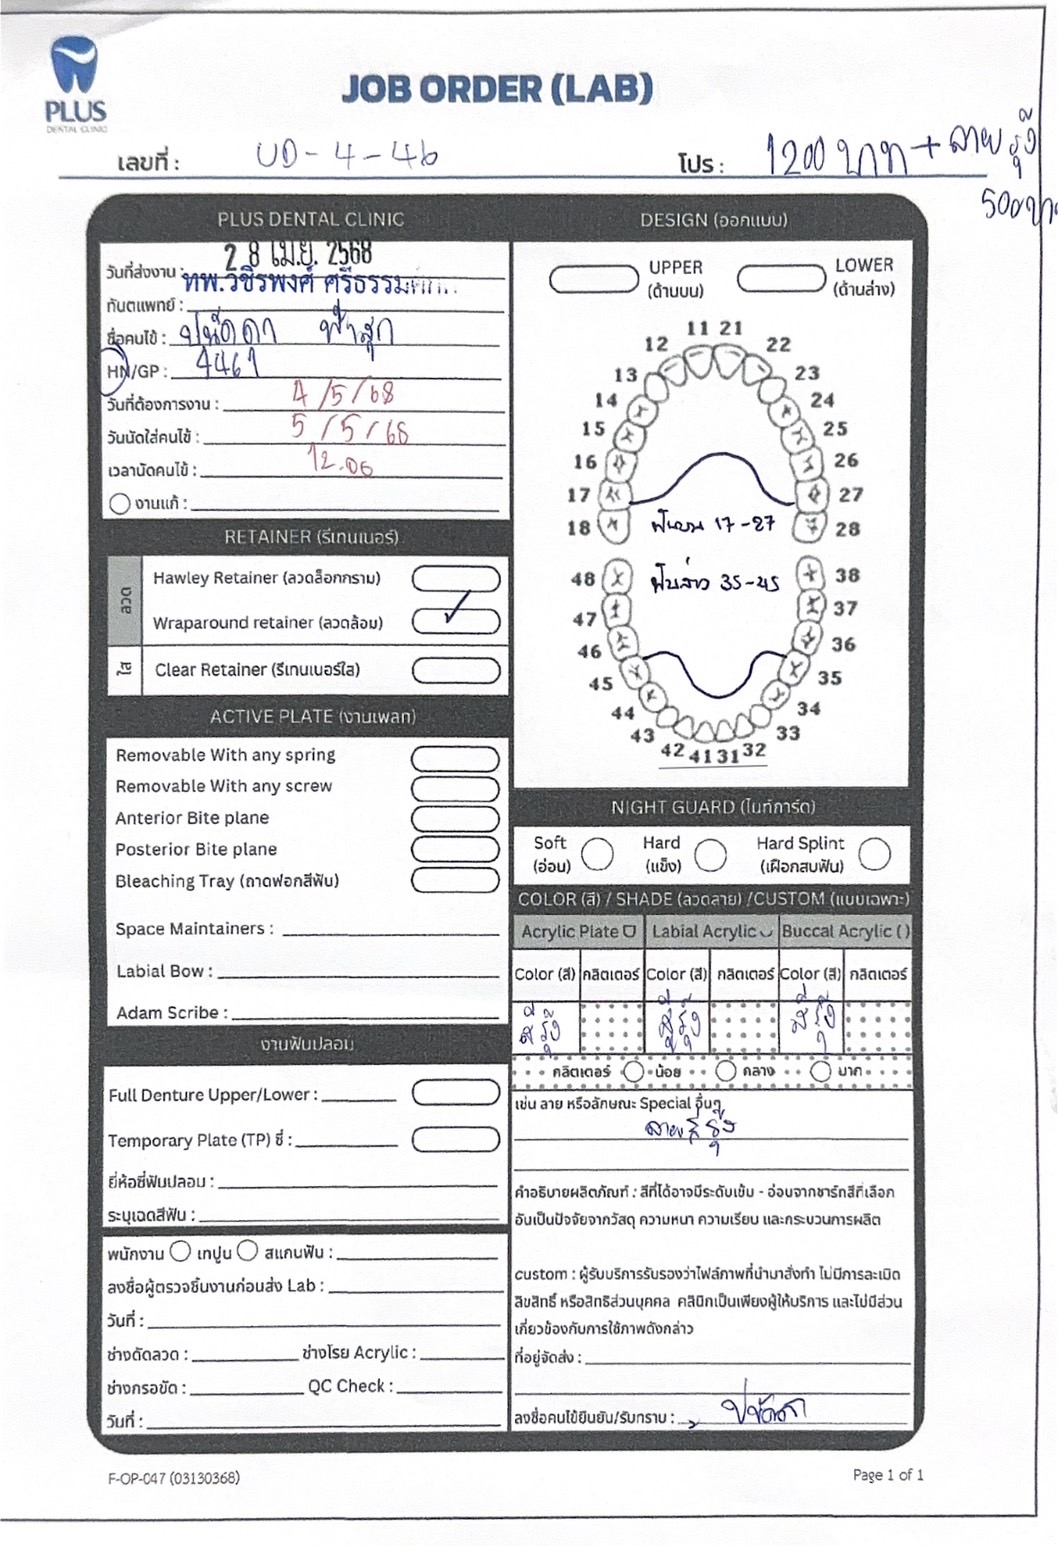 PLUS
DENTAL CLINIC
JOB ORDER (LAB)
เลขที่ : UD-4-46
โปร : 1200 บาท + ลายรุ้ง
500บาท
PLUS DENTAL CLINIC
วันที่ส่งงาน : 28 เม.ย. 2568
ทันตแพทย์ : ทพ.วชิรพงศ์
ชื่อคนไข้ : ปนัดดา ฟ้าสุก
HN/GP : 4461
วันที่ต้องการงาน : 4/5/68
วันนัดใส่คนไข้ : 5/5/68
เวลานัดคนไข้ : 12.00
งานแก้ :
RETAINER (รีเทนเนอร์)
ลวด
Hawley Retainer (ลวดล็อกกราม)
Wraparound retainer (ลวดล้อม) ✓
ใส
Clear Retainer (รีเทนเนอร์ใส)
ACTIVE PLATE (งานเพลท)
Removable With any spring
Removable With any screw
Anterior Bite plane
Posterior Bite plane
Bleaching Tray (ถาดฟอกสีฟัน)
Space Maintainers :
Labial Bow :
Adam Scribe :
งานฟันปลอม
Full Denture Upper/Lower :
Temporary Plate (TP) ซี่ :
ยี่ห้อซี่ฟันปลอม :
ระบุเฉดสีฟัน :
พนักงาน เทปูน สแกนฟัน :
ลงชื่อผู้ตรวจชิ้นงานก่อนส่ง Lab :
วันที่ :
ช่างดัดลวด : ช่างโรย Acrylic :
ช่างกรอขัด : QC Check :
วันที่ :
DESIGN (ออกแบบ)
UPPER (ด้านบน)
LOWER (ด้านล่าง)
11 21
12 22
13 23
14 24
15 25
16 26
17 27
18 28
ฟันบน 17-27
ฟันล่าง 35-45
48 38
47 37
46 36
45 35
44 34
43 33
42 41 31 32
NIGHT GUARD (ไนท์การ์ด)
Soft (อ่อน)
Hard (แข็ง)
Hard Splint (เฝือกสบฟัน)
COLOR (สี) / SHADE (ลวดลาย) /CUSTOM (แบบเฉพาะ)
Acrylic Plate Labial Acrylic Buccal Acrylic ( )
Color (สี) กลิตเตอร์ Color (สี) กลิตเตอร์ Color (สี) กลิตเตอร์
สีรุ้ง สีรุ้ง สีรุ้ง
กลิตเตอร์ น้อย กลาง มาก
เช่น ลาย หรือลักษณะ Special อื่นๆ
ลายสีรุ้ง
คำอธิบายผลิตภัณฑ์ : สีที่ได้อาจมีระดับเข้ม - อ่อนจากชาร์ทสีที่เลือก
อันเป็นปัจจัยจากวัสดุ ความหนา ความเรียบ และกระบวนการผลิต
custom : ผู้รับบริการรับรองว่าไฟล์ภาพที่นำมาสั่งทำ ไม่มีการละเมิด
ลิขสิทธิ์ หรือสิทธิส่วนบุคคล คลินิกเป็นเพียงผู้ให้บริการ และไม่มีส่วน
เกี่ยวข้องกับการใช้ภาพดังกล่าว
ที่อยู่จัดส่ง :
ลงชื่อคนไข้ยืนยัน/รับทราบ : ปนัดดา
F-OP-047 (03130368)
Page 1 of 1